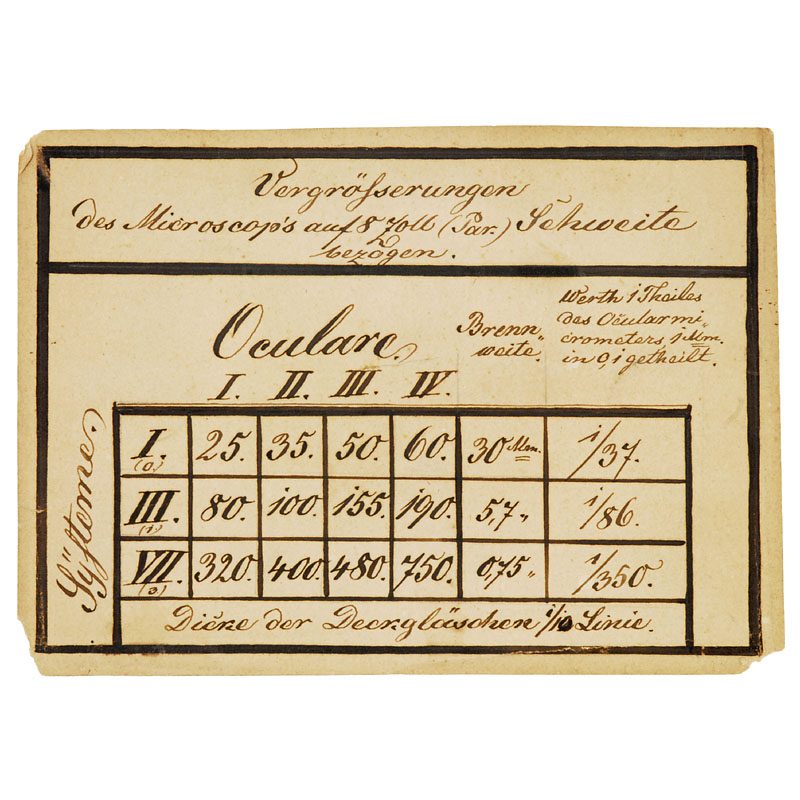 Vergröſserungen
des Microscop's auf 8 Zoll (Par.) Sehweite
bezogen.
Oculare
Brenn„
weite.
Werth 1 Theiles
des Ocularmi„
crometers, 1 Mm.
in 0,1 getheilt.
I. II. III. IV.
Syſteme.
I. 25. 35. 50. 60. 30 Mm. 1/37.
III. 80. 100. 155. 190. 5,7 „ 1/86.
VII. 320. 400. 480. 750. 0,75 „ 1/350.
Dicke der Deckgläschen 1/10 Linie.